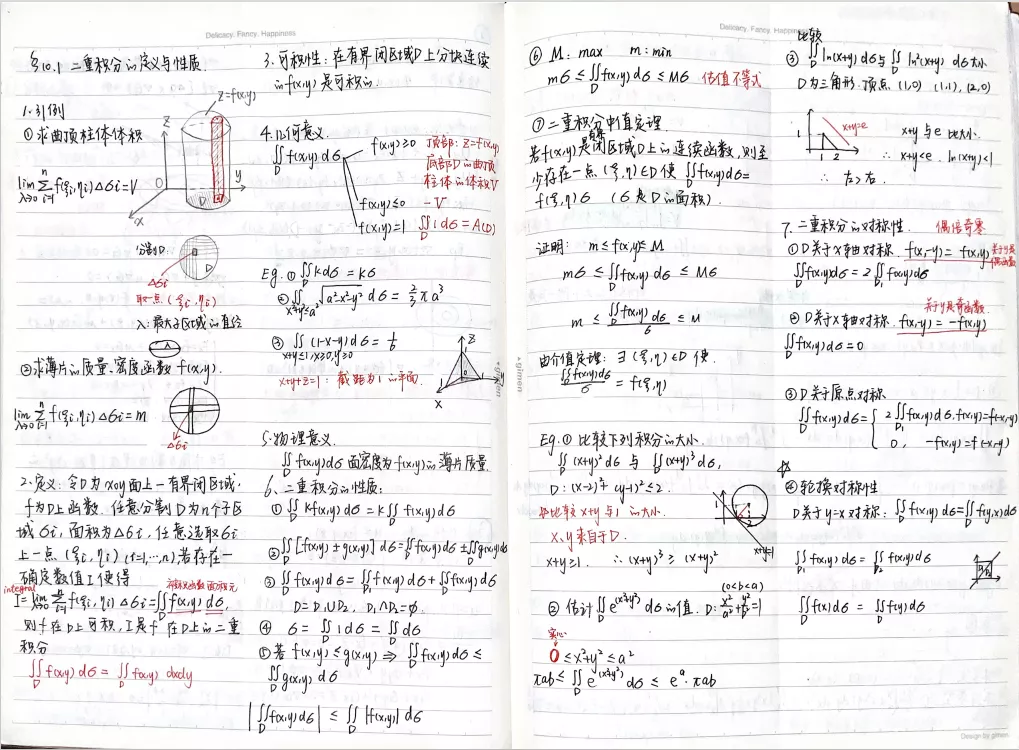 Delicacy. Fancy. Happiness
§10.1 二重积分的定义与性质.
1.引例
①求曲顶柱体体积
z=f(x,y)
z
0
y
x
D
lim λ→0 Σ i=1 n f(ξi,ηi)Δσi=V
分割D.
D
Δσi
取一点(ξi,ηi)
λ:最大子区域的直径
②求薄片的质量.密度函数f(x,y).
lim λ→0 Σ i=1 n f(ξi,ηi)Δσi=m
Δσi
2.定义:令D为xoy面上一有界闭区域,
f为D上函数.任意分割D为n个子区
域σi,面积为Δσi,任意选取σi
上一点(ξi,ηi)(i=1,…,n),若存在一
确定数值I使得
integral
被积函数 面积元
I=lim λ→0 Σ i=1 n f(ξi,ηi)Δσi=∬D f(x,y)dσ,
则f在D上可积,I是f在D上的二重
积分
∬D f(x,y)dσ=∬D f(x,y)dxdy
3.可积性:在有界闭区域D上分块连续
的f(x,y)是可积的
4.几何意义.
∬D f(x,y)dσ
f(x,y)≥0
顶部:z=f(x,y)
底部D的曲顶
柱体的体积V
f(x,y)≤0 -V
f(x,y)=1 ∬D 1dσ=A(D)
Eg.①∬D kdσ=kσ
②∬x²+y²≤a² √a²-x²-y² dσ=2/3πa³
③∬x+y≤1,x≥0,y≥0 (1-x-y)dσ=1/6
x+y+z=1:截距为1的平面.
z
x
5.物理意义.
∬D f(x,y)dσ面密度为f(x,y)的薄片质量.
6、二重积分的性质:
①∬D kf(x,y)dσ=k∬D f(x,y)dσ
②∬D[f(x,y)±g(x,y)]dσ=∬D f(x,y)dσ±∬D g(x,y)dσ
③∬D f(x,y)dσ=∬D1 f(x,y)dσ+∬D2 f(x,y)dσ
D=D1∪D2, D1∩D2=∅.
④ σ=∬D 1dσ=∬D dσ
⑤若f(x,y)≤g(x,y)⇒∬D f(x,y)dσ≤
∬D g(x,y)dσ
|∬D f(x,y)dσ|≤∬D |f(x,y)|dσ
Delicacy, Fancy, Happiness
⑥ M:max m:min
mσ≤∬D f(x,y)dσ≤Mσ 估值不等式
⑦二重积分中值定理.
若f(x,y)是闭区域D上的连续函数,则至
少存在一点(ξ,η)∈D使∬D f(x,y)dσ=
f(ξ,η)σ (σ是D的面积).
证明: m≤f(x,y)≤M
mσ≤∬D f(x,y)dσ≤Mσ
m≤∬D f(x,y)dσ/σ≤M
由介值定理:∃(ξ,η)∈D使
∬D f(x,y)dσ/σ=f(ξ,η)
Eg.①比较下列积分的大小.
∬D(x+y)²dσ与∬D(x+y)³dσ,
D:(x-2)²+(y-1)²≤2.
比较x+y与1的大小.
x、y来自于D.
x+y≥1. ∴(x+y)³≥(x+y)²
1
2
x+y=1
(0<b<a)
②估计∬D e^(x²+y²)dσ的值. D:x²/a²+y²/b²=1
实心
0≤x²+y²≤a²
πab≤∬D e^(x²+y²)dσ≤e^a²·πab
比较
③∬D ln(x+y)dσ与∬D ln²(x+y)dσ大小
D为三角形.顶点(1,0) (1,1),(2,0)
1
1 2
x+y=e
x+y与e比大小
∴x+y<e. ln(x+y)<1
∴ 左>右.
7.二重积分的对称性. 偶倍奇零
①D关于x轴对称.f(x,-y)=f(x,y)关于y是偶函数
∬D f(x,y)dσ=2∬D1 f(x,y)dσ
关于y是奇函数.
②D关于x轴对称.f(x,-y)=-f(x,y)
∬D f(x,y)dσ=0
③D关于原点对称
∬D f(x,y)dσ={2∬D1 f(x,y)dσ.f(x,y)=f(-x,-y)
0, -f(x,y)=f(-x,-y)
④轮换对称性
D关于y=x对称:∬D f(x,y)dσ=∬D f(y,x)dσ
∬D1 f(x,y)dσ=∬D2 f(x,y)dσ
∬D f(x)dσ=∬D f(y)dσ
+gimen
+gimen
Design by gimen